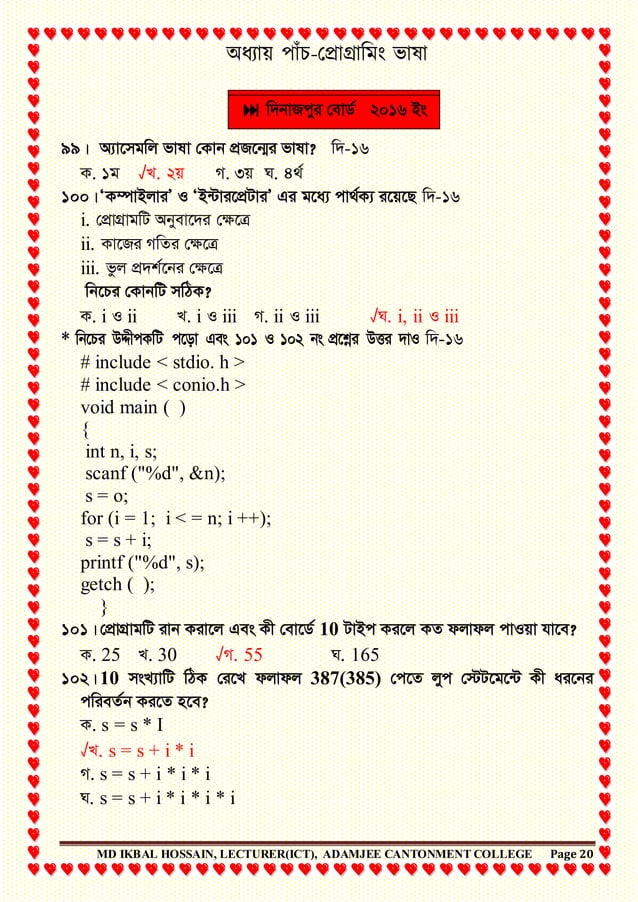 অধ্যায় পাঁচ-প্রোগ্রামিং ভাষা
⏭ দিনাজপুর বোর্ড ২০১৬ ইং
৯৯। অ্যাসেমলি ভাষা কোন প্রজন্মের ভাষা? দি-১৬
ক. ১ম √খ. ২য় গ. ৩য় ঘ. ৪র্থ
১০০। ‘কম্পাইলার’ ও ‘ইন্টারপ্রেটার’ এর মধ্যে পার্থক্য রয়েছে দি-১৬
i. প্রোগ্রামটি অনুবাদের ক্ষেত্রে
ii. কাজের গতির ক্ষেত্রে
iii. ভুল প্রদর্শনের ক্ষেত্রে
নিচের কোনটি সঠিক?
ক. i ও ii খ. i ও iii গ. ii ও iii √ঘ. i, ii ও iii
* নিচের উদ্দীপকটি পড়ো এবং ১০১ ও ১০২ নং প্রশ্নের উত্তর দাও দি-১৬
# include < stdio. h >
# include < conio.h >
void main ( )
{
int n, i, s;
scanf ("%d", &n);
s = o;
for (i = 1; i < = n; i ++);
s = s + i;
printf ("%d", s);
getch ( );
}
১০১। প্রোগ্রামটি রান করালে এবং কী বোর্ডে 10 টাইপ করলে কত ফলাফল পাওয়া যাবে?
ক. 25 খ. 30 √গ. 55 ঘ. 165
১০২। 10 সংখ্যাটি ঠিক রেখে ফলাফল 387(385) পেতে লুপ স্টেটমেন্টে কী ধরনের
পরিবর্তন করতে হবে?
ক. s = s * I
√খ. s = s + i * i
গ. s = s + i * i * i
ঘ. s = s + i * i * i * i
MD IKBAL HOSSAIN, LECTURER(ICT), ADAMJEE CANTONMENT COLLEGE Page 20